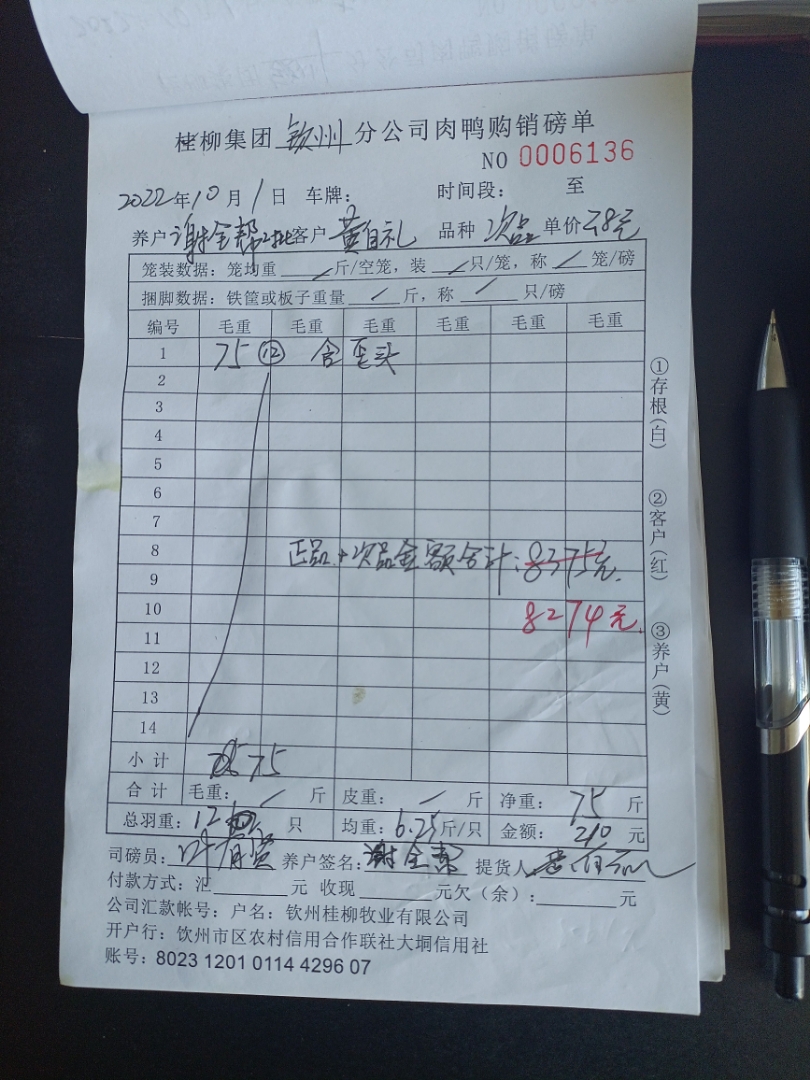 桂柳集团 钦州 分公司肉鸭购销磅单
NO 0006136
2022年10月1日 车牌： 时间段： 至
养户 谢全帮2批 客户 黄自礼 品种 次品 单价 2.8元
笼装数据：笼均重 / 斤/空笼，装 / 只/笼，称 / 笼/磅
捆脚数据：铁筐或板子重量 / 斤，称 / 只/磅
编号 毛重 毛重 毛重 毛重 毛重 毛重
1 75 ⑫ 含歪头
2
3
4
5
6
7
8 正品+次品金额合计：8375元.
9
10 8274元.
11
12
13
14
小计 75
合计 毛重： / 斤 皮重： / 斤 净重： 75 斤
总羽重： 12 只 均重： 6.25 斤/只 金额： 210 元
司磅员： 养户签名： 谢全帮 提货人
付款方式：汇 元 收现 元欠（余）： 元
公司汇款帐号：户名：钦州桂柳牧业有限公司
开户行：钦州市区农村信用合作联社大垌信用社
账号：8023 1201 0114 4296 07
①存根（白） ②客户（红） ③养户（黄）